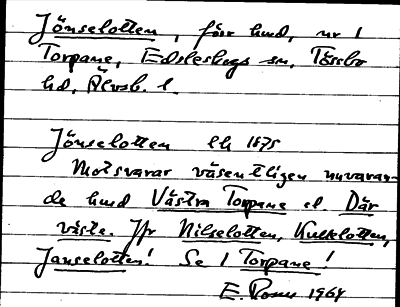 Jönselotten, förr hmd, nr 1
Torpane, Edsleskogs sn, Tössbo
hd, Älvsb. l.
Jönselotten lk 1875
Motsvarar väsentligen nuvaran-
de hmd Västra Torpane el Där
väste. Jfr Nilselotten, Kulselotten,
Janselotten! Se 1 Torpane!
E. 1964